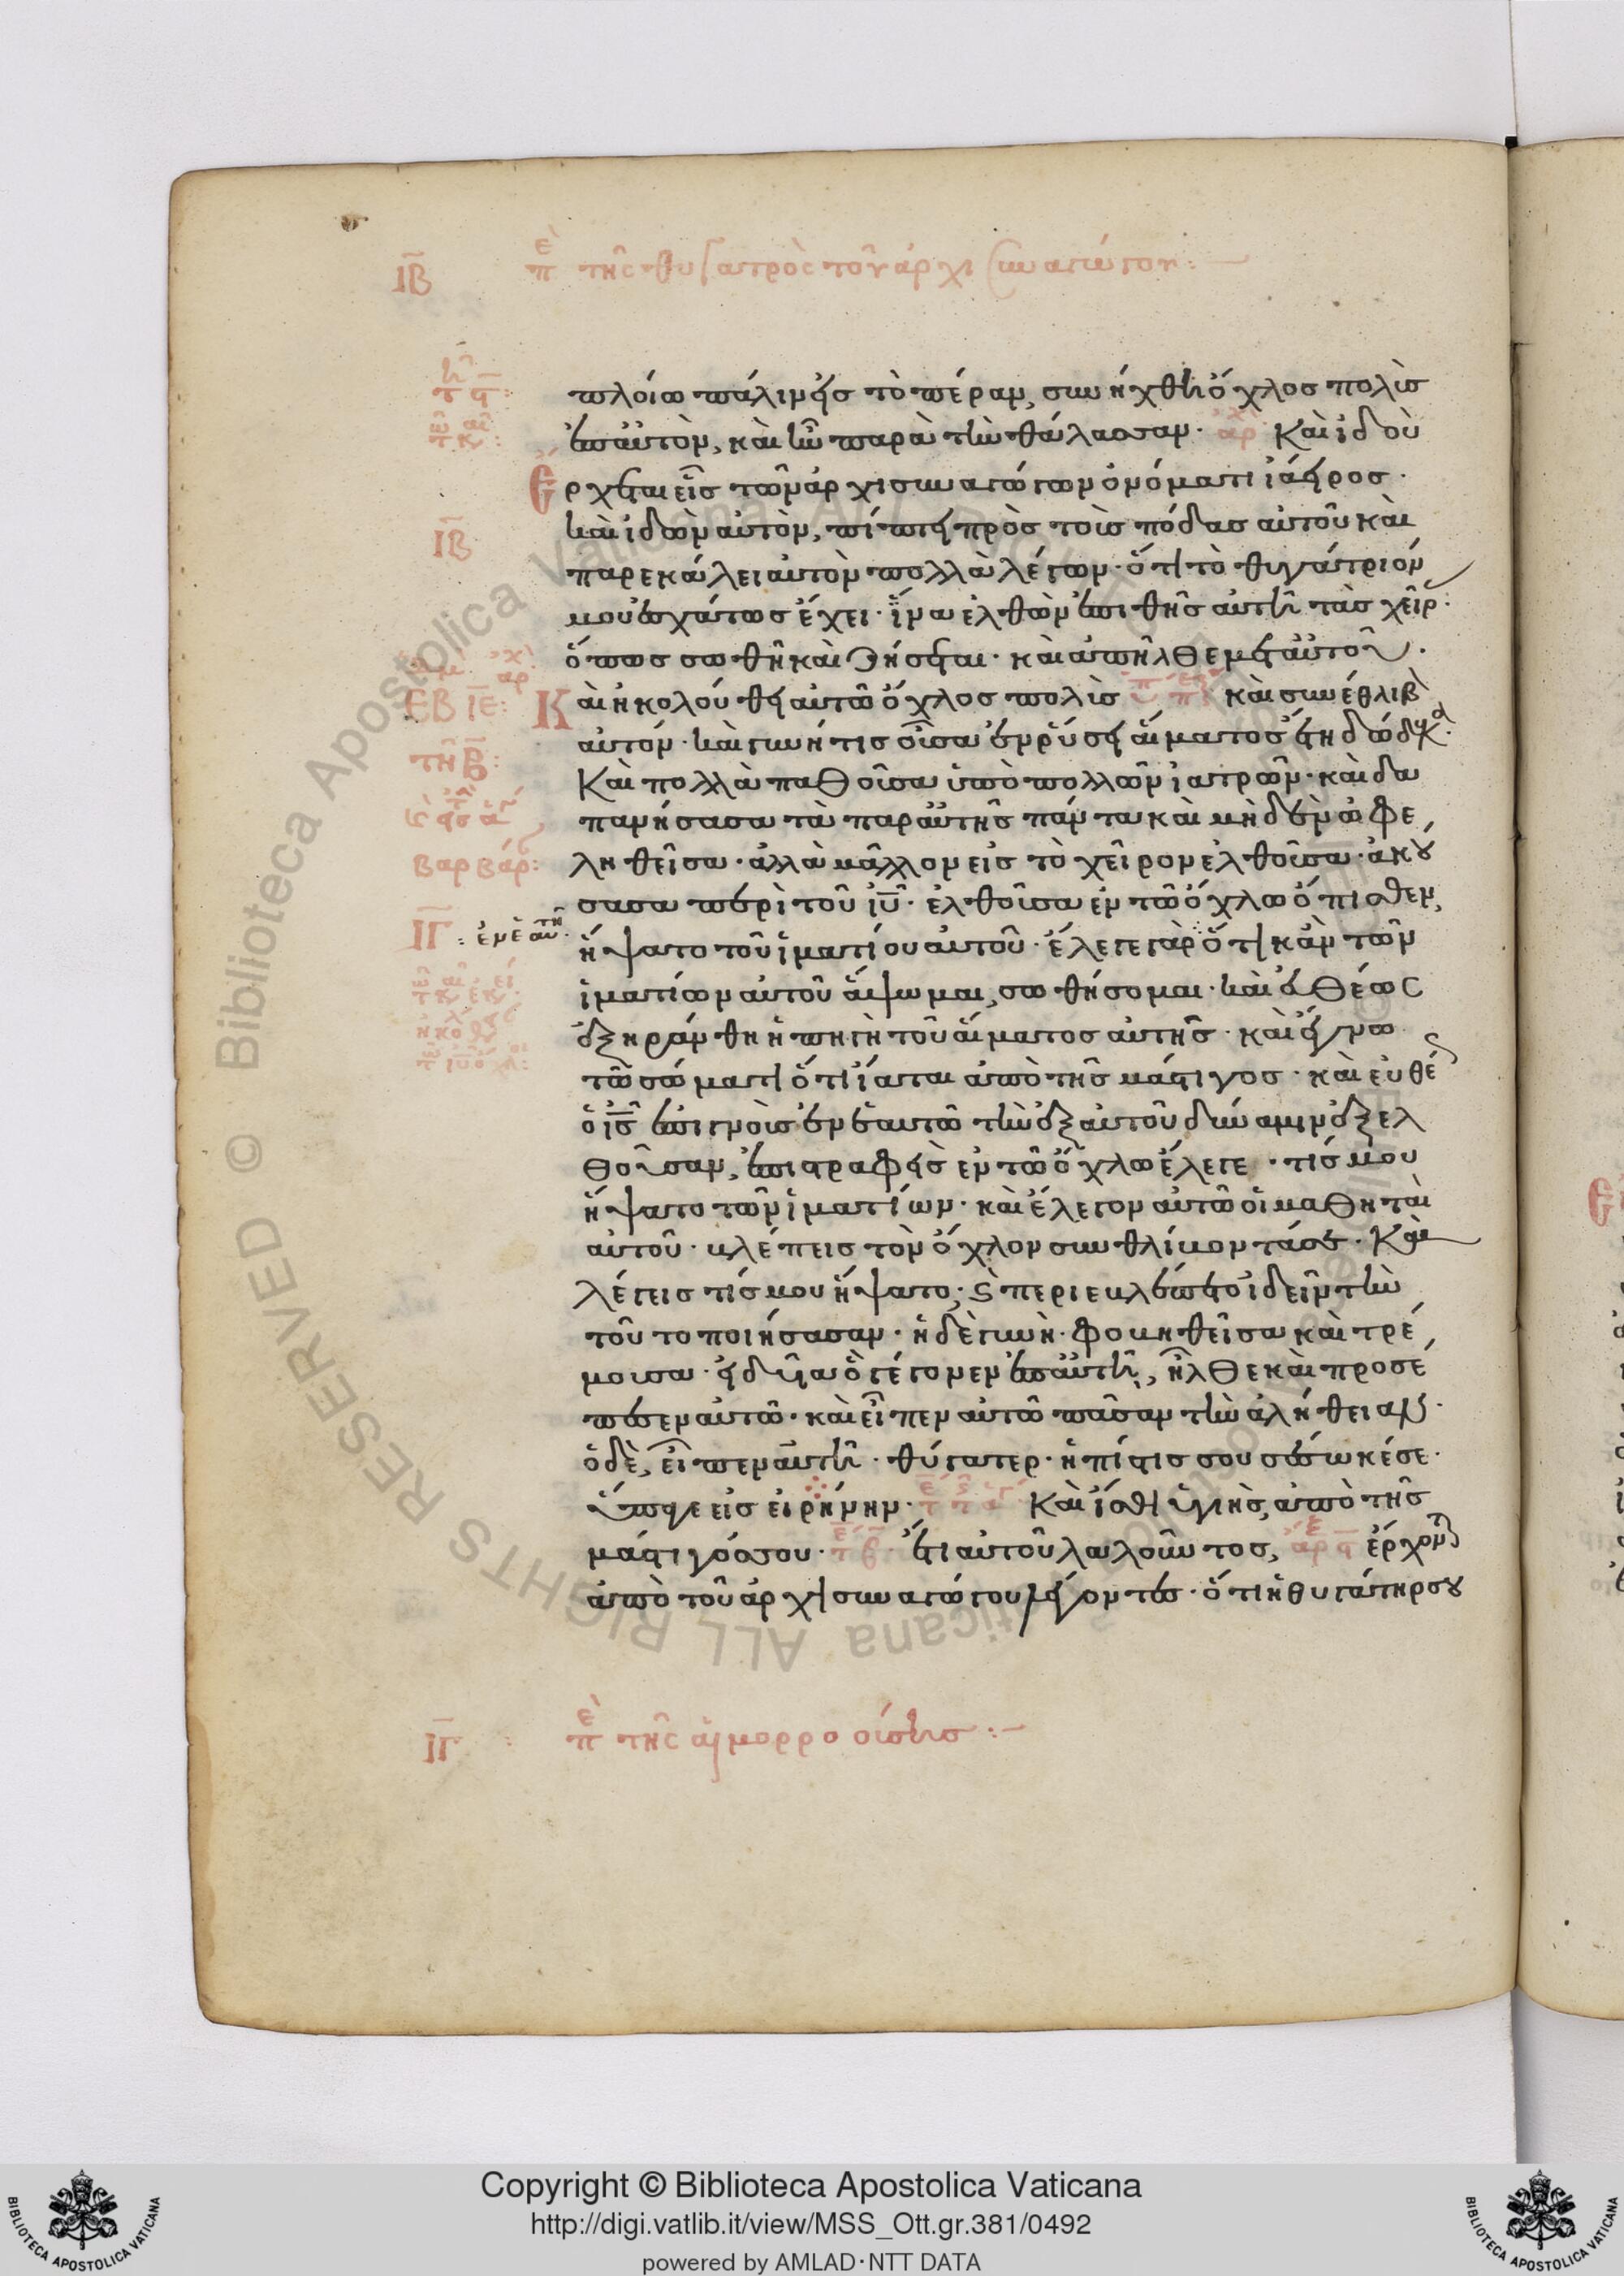 ΙΒ ἐπ τῆς θυγατρὸς τοῦ ἀρχισυναγώγου:
πλοίω πάλιν εἰς τὸ πέραν, συνήχθη ὄχλος πολὺς
ἐπ αὐτὸν, καὶ ἦν παρὰ τὴν θάλασσαν· ἀρ Καὶ ἰδοὺ
Ερχεται εἷς τῶν ἀρχισυναγώγων ὀνόματι ἰάειρος·
καὶ ἰδὼν αὐτὸν, πίπτει πρὸς τοὺς πόδας αὐτοῦ καὶ
ΙΒ
παρεκάλει αὐτὸν πολλὰ λέγων· ὅτι τὸ θυγάτριόν
μου ἐσχάτως ἔχει· ἵνα ἐλθὼν ἐπιθῆς αὐτῆ τὰς χεῖρ·
ὅπως σωθῆ καὶ ζήσεται· καὶ ἀπῆλθε μετ αὐτοῦ·
ΕΒ ΙΕ: Καὶ ἠκολούθει αὐτῶ ὄχλος πολὺς καὶ συνέθλιβ
αὐτόν· καὶ γυνή τις οὖσα ἐν ῥύσει αἵματος ἔτη δώδεκα·
τῆ Β:
Καὶ πολλὰ παθοῦσα ὑπὸ πολλῶν ἰατρῶν· καὶ δα
πανήσασα τὰ παρ αὐτῆς πάντα καὶ μηδὲν ὠφε
βαρβάρ:
ληθεῖσα· ἀλλὰ μᾶλλον εἰς τὸ χεῖρον ἐλθοῦσα· ἀκού
σασα περὶ τοῦ ἰῦ· ἐλθοῦσα ἐν τῶ ὄχλω ὄπισθεν,
ΙΓ:
ἥψατο τοῦ ἱματίου αὐτοῦ· ἔλεγε γὰρ ὅτι κἂν τῶν
ἱματίων αὐτοῦ ἅψωμαι, σωθήσομαι· καὶ εὐθέως
ἐξηράνθη ἡ πηγὴ τοῦ αἵματος αὐτῆς· καὶ ἔγνω
τῶ σώματι ὅτι ἴαται ἀπὸ τῆς μάστιγος· καὶ εὐθέως
ὁ ἰς ἐπιγνοὺς ἐν ἑαυτῶ τὴν ἐξ αὐτοῦ δύναμιν ἐξελ
θοῦσαν, ἐπιστραφεὶς ἐν τῶ ὄχλω ἔλεγε· τίς μου
ἥψατο τῶν ἱματίων· καὶ ἔλεγον αὐτῶ οἱ μαθηταὶ
αὐτοῦ· βλέπεις τὸν ὄχλον συνθλίβοντά σε· Καὶ
λέγεις τίς μου ἥψατο; ϛ περιεβλέπετο ἰδεῖν τὴν
τοῦτο ποιήσασαν· ἡ δὲ γυνὴ· φοβηθεῖσα καὶ τρέ
μουσα· εἰδυῖα ὃ γέγονεν ἐπ αὐτῆ, ἦλθε καὶ προσέ
πεσεν αὐτῶ· καὶ εἶπεν αὐτῶ πᾶσαν τὴν ἀλήθειαν·
ὁ δὲ, εἶπεν αὐτῆ· θύγατερ· ἡ πίστις σου σέσωκέ σε·
ὕπαγε εἰς εἰρήνην· Καὶ ἴσθι ὑγιὴς, ἀπὸ τῆς
μάστιγός σου· ἔτι αὐτοῦ λαλοῦντος, ἔρχον
ἀπὸ τοῦ ἀρχισυναγώγου λέγοντες· ὅτι ἡ θυγάτηρ σου
ΙΓ: ἐπ τῆς αἱμορροούσης:
© Biblioteca Apostolica Vaticana ALL RIGHTS RESERVED
Copyright © Biblioteca Apostolica Vaticana
http://digi.vatlib.it/view/MSS_Ott.gr.381/0492
powered by AMLAD·NTT DATA
BIBLIOTECA APOSTOLICA VATICANA
BIBLIOTECA APOSTOLICA VATICANA